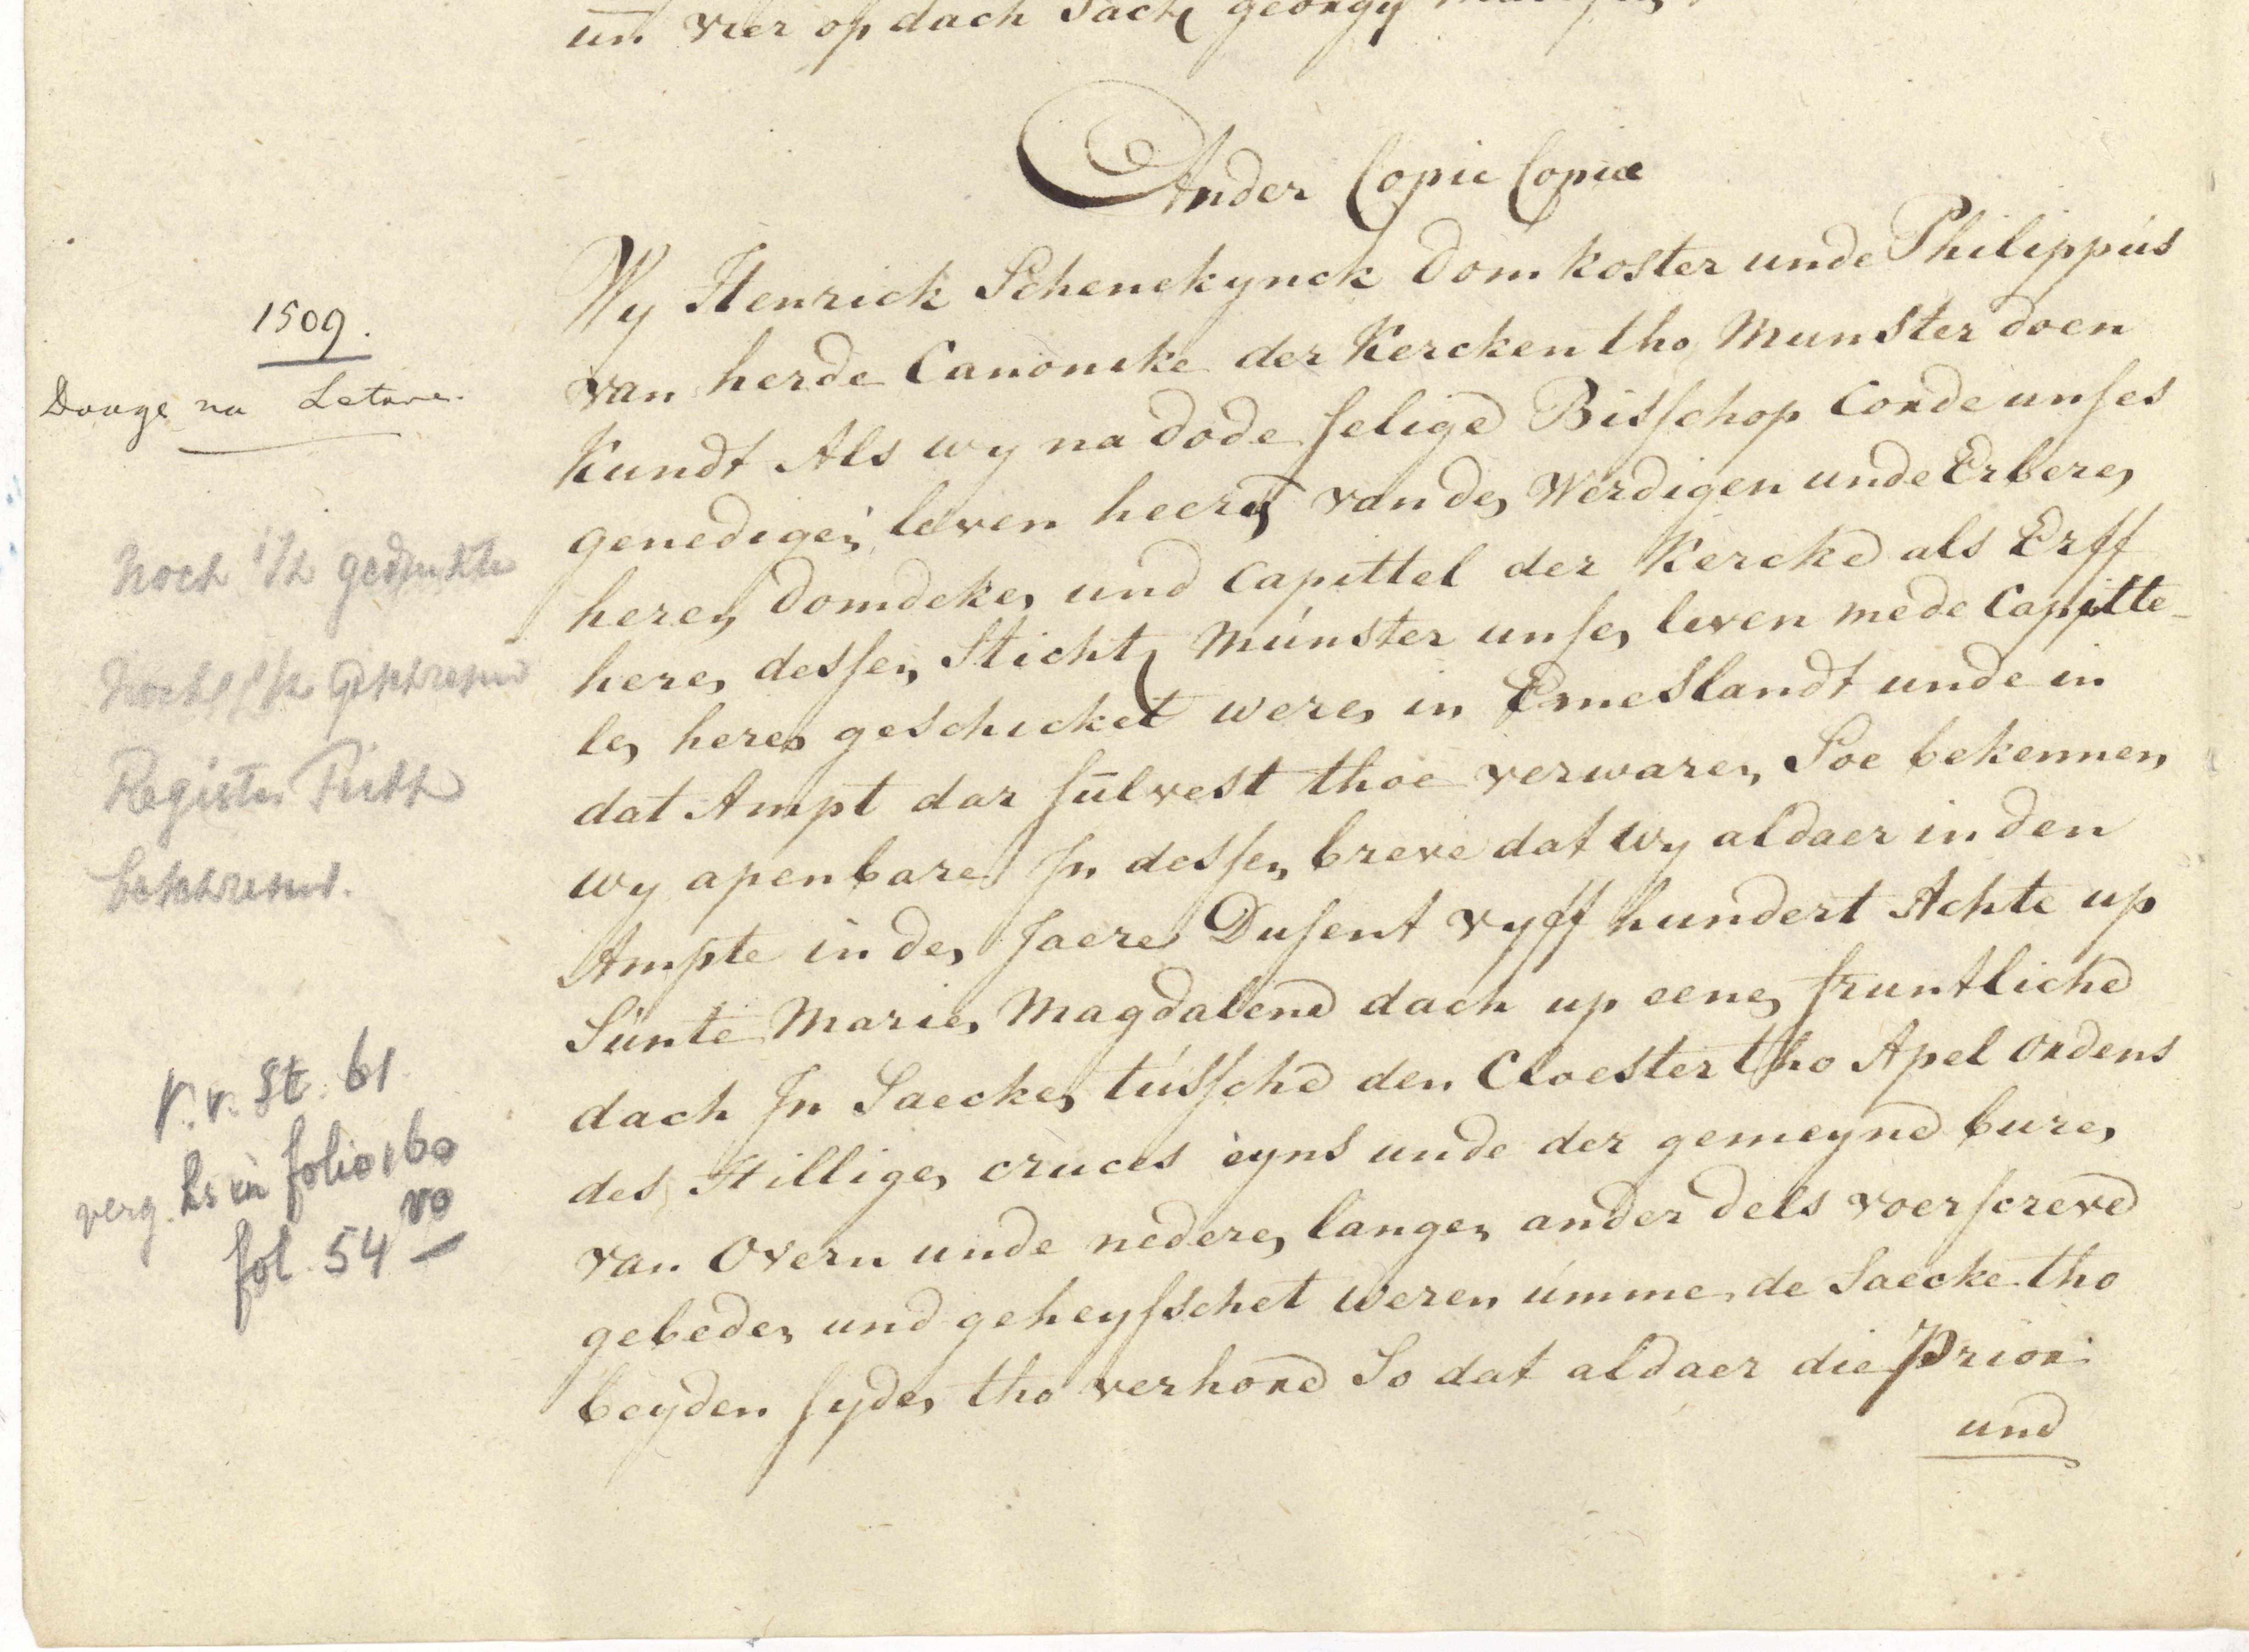 un vier op dach Sact georgy
Ander Copie Copiæ
Wy Henrick Schenckynck Domkoster unde Philippus
van herde Canonike der Kercken tho Munster doen
Kundt Als wy na dode selige Bisschop Corde unses
genedige leven heere van de Werdigen unde Erbere
here Domdeke und Capittel der Kercke als Erff
here desse Sticht Munster unse leven mede Capitte-
le here geschicket were in Emeslandt unde in
dat Ampt dar sulvest thoe verware Soe bekennen
wy apenbare In desse breve dat wy aldaer in den
Ampte in de Jaere Dusent vyff hundert Achte up
Sunte Marie Magdalene dach up eene fruntliche
dach In Saecke tussche den Cloester tho Apel ordens
des Hillige cruces eyns unde der gemeyne bure
van Overn unde nedere lange ander dels voerscreve
gebede und geheysschet weren umme de Saecke tho
beyden syde tho verhore So dat aldaer die Prior
und
1509.
na Letare.
Noch
Register
V. v. St. 61
verg. Hs in folio 160
fol. 54 vo